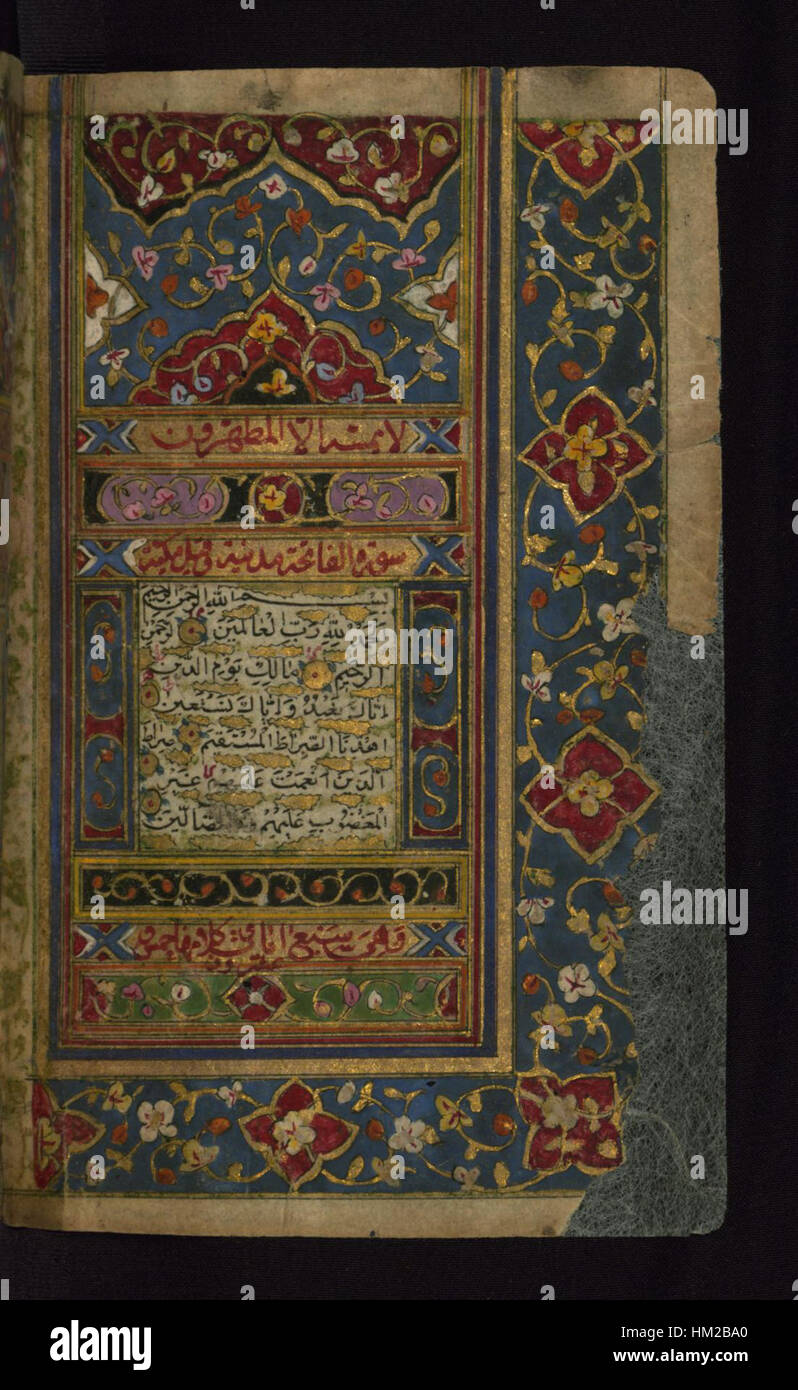 لا يمسه الا المطهرون
سورة الفاتحة مدنية وقيل مكية
بسم الله الرحمن الرحيم
لله رب العالمين الرحمن
الرحيم مالك يوم الدين
إياك نعبد وإياك نستعين
اهدنا الصراط المستقيم صراط
الذين أنعمت عليهم غير
المغضوب عليهم الضالين
وهى سبع ايات
alamy
Image ID: HM2BA0
www.alamy.com